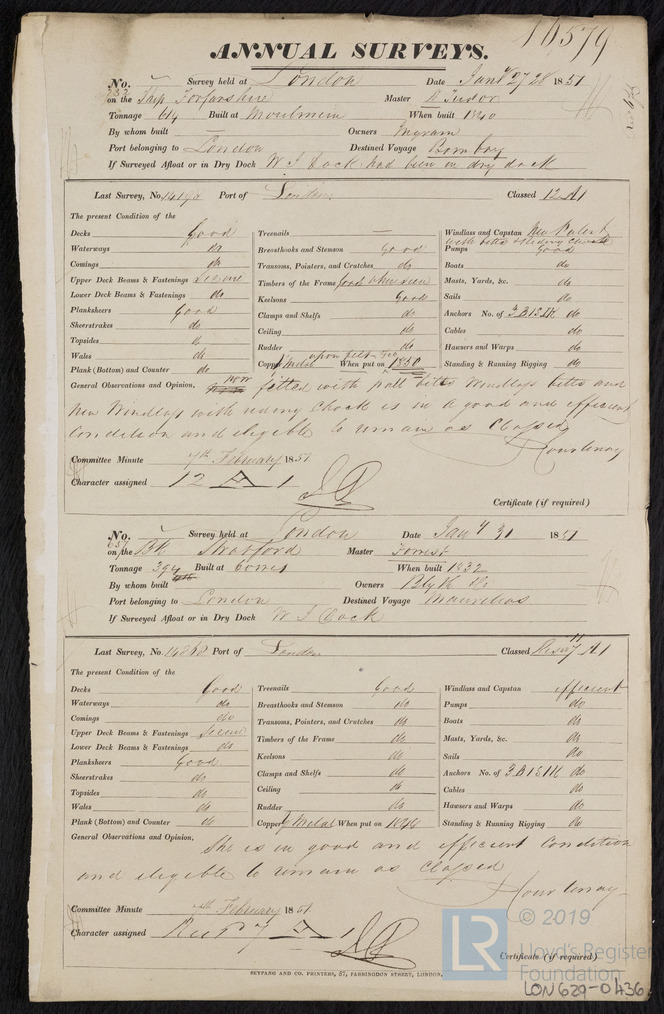 16579
ANNUAL SURVEYS.
No. Survey held at London Date Jany 27 28 1851
on the Ship Forfarshire Master D Tudor
Tonnage 614 Built at Moulmein When built 1840
By whom built — Owners Ingram
Port belonging to London Destined Voyage Bombay
If Surveyed Afloat or in Dry Dock W I Dock had been in dry dock
Last Survey, No. Port of London Classed 12 A1
The present Condition of the
Decks Good
Waterways do
Comings do
Upper Deck Beams & Fastenings Secure
Lower Deck Beams & Fastenings do
Planksheers Good
Sheerstrakes do
Topsides do
Wales do
Plank (Bottom) and Counter do
Treenails —
Breasthooks and Stemson Good
Transoms, Pointers, and Crutches do
Timbers of the Frame good when seen
Keelsons Good
Clamps and Shelfs do
Ceiling do
Rudder do
Copper y Metal upon felt When put on 1850
Windlass and Capstan New Patent
with bitts & riding chock
Pumps Good
Boats do
Masts, Yards, &c. do
Sails do
Anchors No. of 3 B 1 S 1 K do
Cables do
Hawsers and Warps do
Standing & Running Rigging do
General Observations and Opinion, now fitted with pall bitts Windlass bitts and
New Windlass with riding Chock is in a good and efficient
Condition and eligible to remain as Classed
Courtenay
Committee Minute 7th February 1851
Character assigned 12 A 1
Certificate (if required)
No. Survey held at London Date Jany 31 1851
on the Bk Stratford Master Forrest
Tonnage 394 Built at Cowes When built 1832
By whom built Owners Blyth
Port belonging to London Destined Voyage Mauritius
If Surveyed Afloat or in Dry Dock W I Dock
Last Survey, No. Port of London Classed A1
The present Condition of the
Decks Good
Waterways do
Comings do
Upper Deck Beams & Fastenings Secure
Lower Deck Beams & Fastenings do
Planksheers Good
Sheerstrakes do
Topsides do
Wales do
Plank (Bottom) and Counter do
Treenails Good
Breasthooks and Stemson do
Transoms, Pointers, and Crutches do
Timbers of the Frame do
Keelsons do
Clamps and Shelfs do
Ceiling do
Rudder do
Copper y Metal When put on
Windlass and Capstan efficient
Pumps do
Boats do
Masts, Yards, &c. do
Sails do
Anchors No. of 3 B 1 S 1 K do
Cables do
Hawsers and Warps do
Standing & Running Rigging do
General Observations and Opinion, She is in good and efficient Condition
and eligible to remain as Classed
Courtenay
Committee Minute 7th February 1851
Character assigned A 1
Certificate (if required)
SEYFANG AND CO. PRINTERS, 57, FARRINGDON STREET, LONDON.
LR © 2019
Lloyd's Register
Foundation
LON629-0436